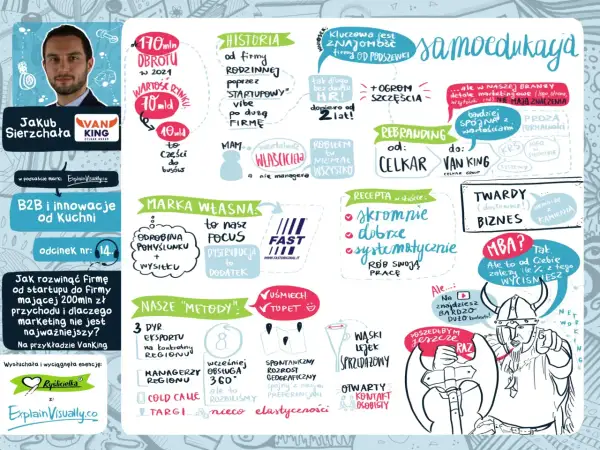 Jakub
Sierzchała
VAN
KING
w podcaście marki: ExplainVisually.co
B2B i innowacje
od Kuchni
odcinek nr: 14.
Jak rozwinąć Firmę
od startupu do Firmy
mającej 200mln zł
przychodu i dlaczego
marketing nie jest
najważniejszy?
Na przykładzie VanKing
Wysłuchała i wyciągnęła esencję:
Ryślicielka
z:
ExplainVisually.co
170 mln
OBROTU
w 2021
WARTOŚĆ RYNKU
70 mld
10 mld
to
CZĘŚCI
do
busów
HISTORIA
od firmy
RODZINNEJ
poprzez
"STARTUPOWY"
vibe
po dużą
FIRMĘ
Kluczowa jest
ZNAJOMOŚĆ
firmy
OD PODSZEWKI
tak długo
bez działu
HR!
dopiero od
2 lat!
+ OGROM
SZCZĘŚCIA
samoedukacja
... ale w NASZEJ BRANŻY
MAJĄ ZNACZENIA
REBRANDING
od:
CELKAR
do:
VAN KING
bardziej
SPÓJNA z
wartościami
MAM
mentalność
WŁAŚCICIELA
a nie managera
ROBIŁEM
bo MUSIAŁ
WSZYSTKO
MARKA WŁASNA:
ODROBINA
POMYŚLUNKU
+
WYSIŁKU
to nasz
FOCUS
DYSTRYBUCJA
to
DODATEK
FAST
RECEPTA
skromnie
dobrze
systematycznie
RÓB SWOJĄ
PRACĘ
TWARDY
BIZNES
KAMIENIA
MBA?
Tak
Ale to od Ciebie
zależy ile % z tego
WYCIŚNIESZ
Ale...
Na
znajdziesz
BARDZO
DUŻO
POSZEDŁBYM
jeszcze
RAZ
NETWORKING
NASZE "METODY":
UŚMIECH
TUPET
3 DYR
EKSPORTU
na konkretny
REGIONY
MANAGERZY
REGIONU
COLD CALLE
TARGI
wcześniej
OBSŁUGA
360°
ale to
ROZBILIŚMY
SPONTANICZNY
ROZROST
GEOGRAFICZNY
spójny z naszymi
nieco elastyczności
WĄSKI
LEJEK
SPRZEDAŻOWY
OTWARTY
KONTAKT
OSOBISTY